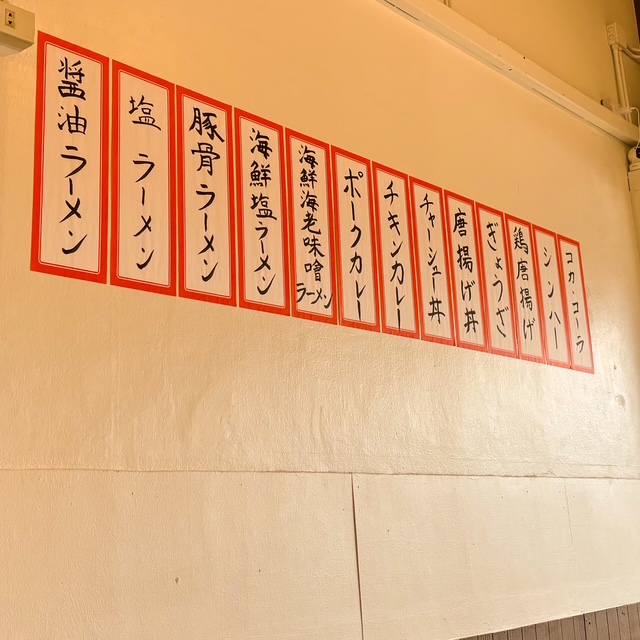 醤油ラーメン
塩ラーメン
豚骨ラーメン
海鮮塩ラーメン
海鮮海老味噌ラーメン
ポークカレー
チキンカレー
チャーシュー丼
唐揚げ丼
ぎょうざ
鶏唐揚げ
シンハー
コカ・コーラ